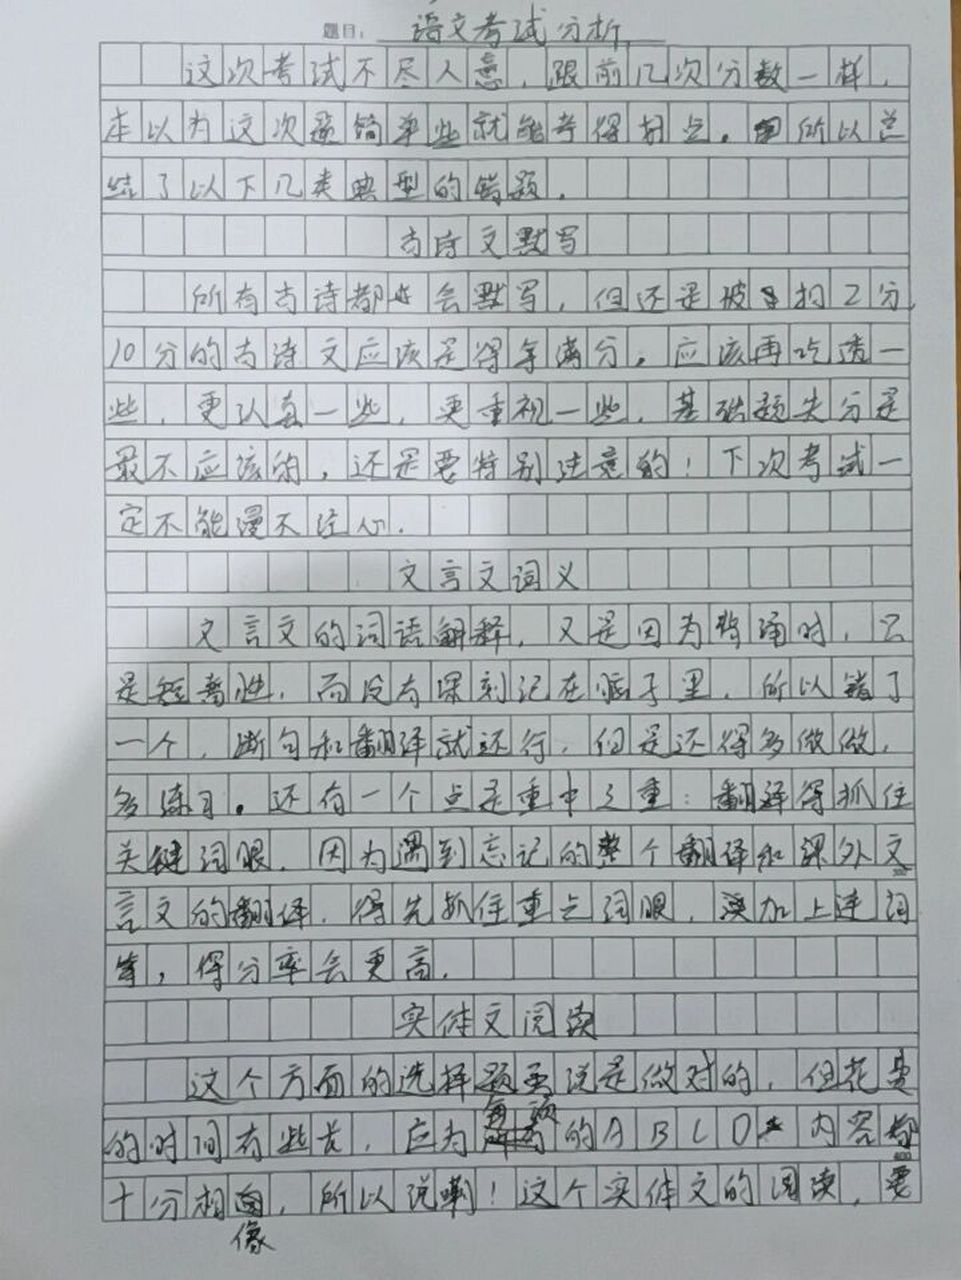 题目: 语文考试分析
这次考试不尽人意,跟前几次分数一样,
本以为这次还简单些就能考得好点。所以总
结了以下几类典型的错题.
古诗文默写
所有古诗都会默写,但还是被扣2分,
10分的古诗文应该是得拿满分,应该再吃透一
些,更认真一些,更重视一些,基础题失分是
最不应该的,还是要特别注意的!下次考试一
定不能漫不经心.
文言文词义
文言文的词语解释,又是因为背诵时,只
是短暂性,而没有深刻记在脑子里,所以错了
一个,断句和翻译就还行,但是还得多做做,
多练习。还有一个点是重中之重:翻译得抓住
关键词眼,因为遇到忘记的整个翻译和课外文
300
言文的翻译,得先抓住重点词眼,添加上连词
等,得分率会更高.
实体文阅读
这个方面的选择题虽说是做对的,但花费
的时间有些长,应为每项的ABCD内容都
400
十分相像,所以说啊!这个实体文的阅读,要